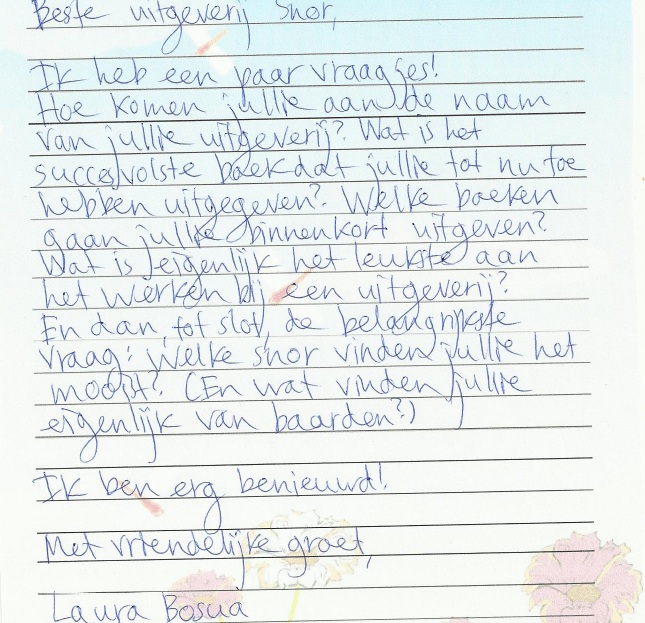 Beste uitgeverij Snor,
Ik heb een paar vraagjes!
Hoe komen jullie aan de naam
van jullie uitgeverij? Wat is het
succesvolste boek dat jullie tot nu toe
hebben uitgegeven? Welke boeken
gaan jullie binnenkort uitgeven?
Wat is eigenlijk het leukste aan
het werken bij een uitgeverij?
En dan, tot slot, de belangrijkste
vraag: Welke snor vinden jullie het
mooist? (En wat vinden jullie
eigenlijk van baarden?)
Ik ben erg benieuwd!
Met vriendelijke groet,
Laura Bosua